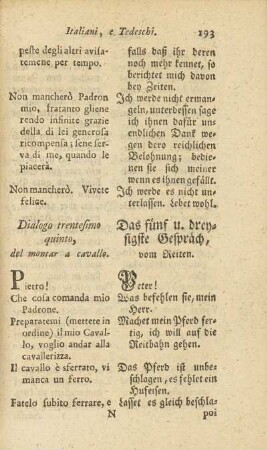 Italiani, e Tedeschi. 193
peste degli altri avisa-
temene per tempo.
Non mancherò Padron
mio, fratanto gliene
rendo infinite grazie
della di lei generosa
ricompensa; sene serva
di me, quando le
piacerà.
Non mancherò. Vivete
felice.
Dialogo trentesimo
quinto,
del montar a cavallo.
Pietro!
Che cosa comanda mio
Padrone.
Preparatemi (mettere in
ordine) il mio Caval-
lo, voglio andar alla
cavallerizza.
Il cavallo è sferrato, vi
manca un ferro.
Fatelo subito ferrare, e
falls daß ihr deren
noch mehr kennet, so
berichtet mich davon
bey Zeiten.
Ich werde nicht erman-
geln, unterdessen sage
ich ihnen dafür uns
endlichen Dank we-
gen dero reichlichen
Belohnung; bedie-
nen sie sich meiner
wenn es ihnen gefällt.
Ich werde es nicht un-
terlassen. Lebet wohl.
Das fünf u. drey-
sigste Gespräch,
vom Reiten.
Peter!
Was befehlen sie, mein
Herr.
Machet mein Pferd fer-
tig, ich will auf die
Reitbahn gehen.
Das Pferd ist unbe-
schlagen, es fehlet ein
Hufeisen.
Lasset es gleich beschla-
N poi